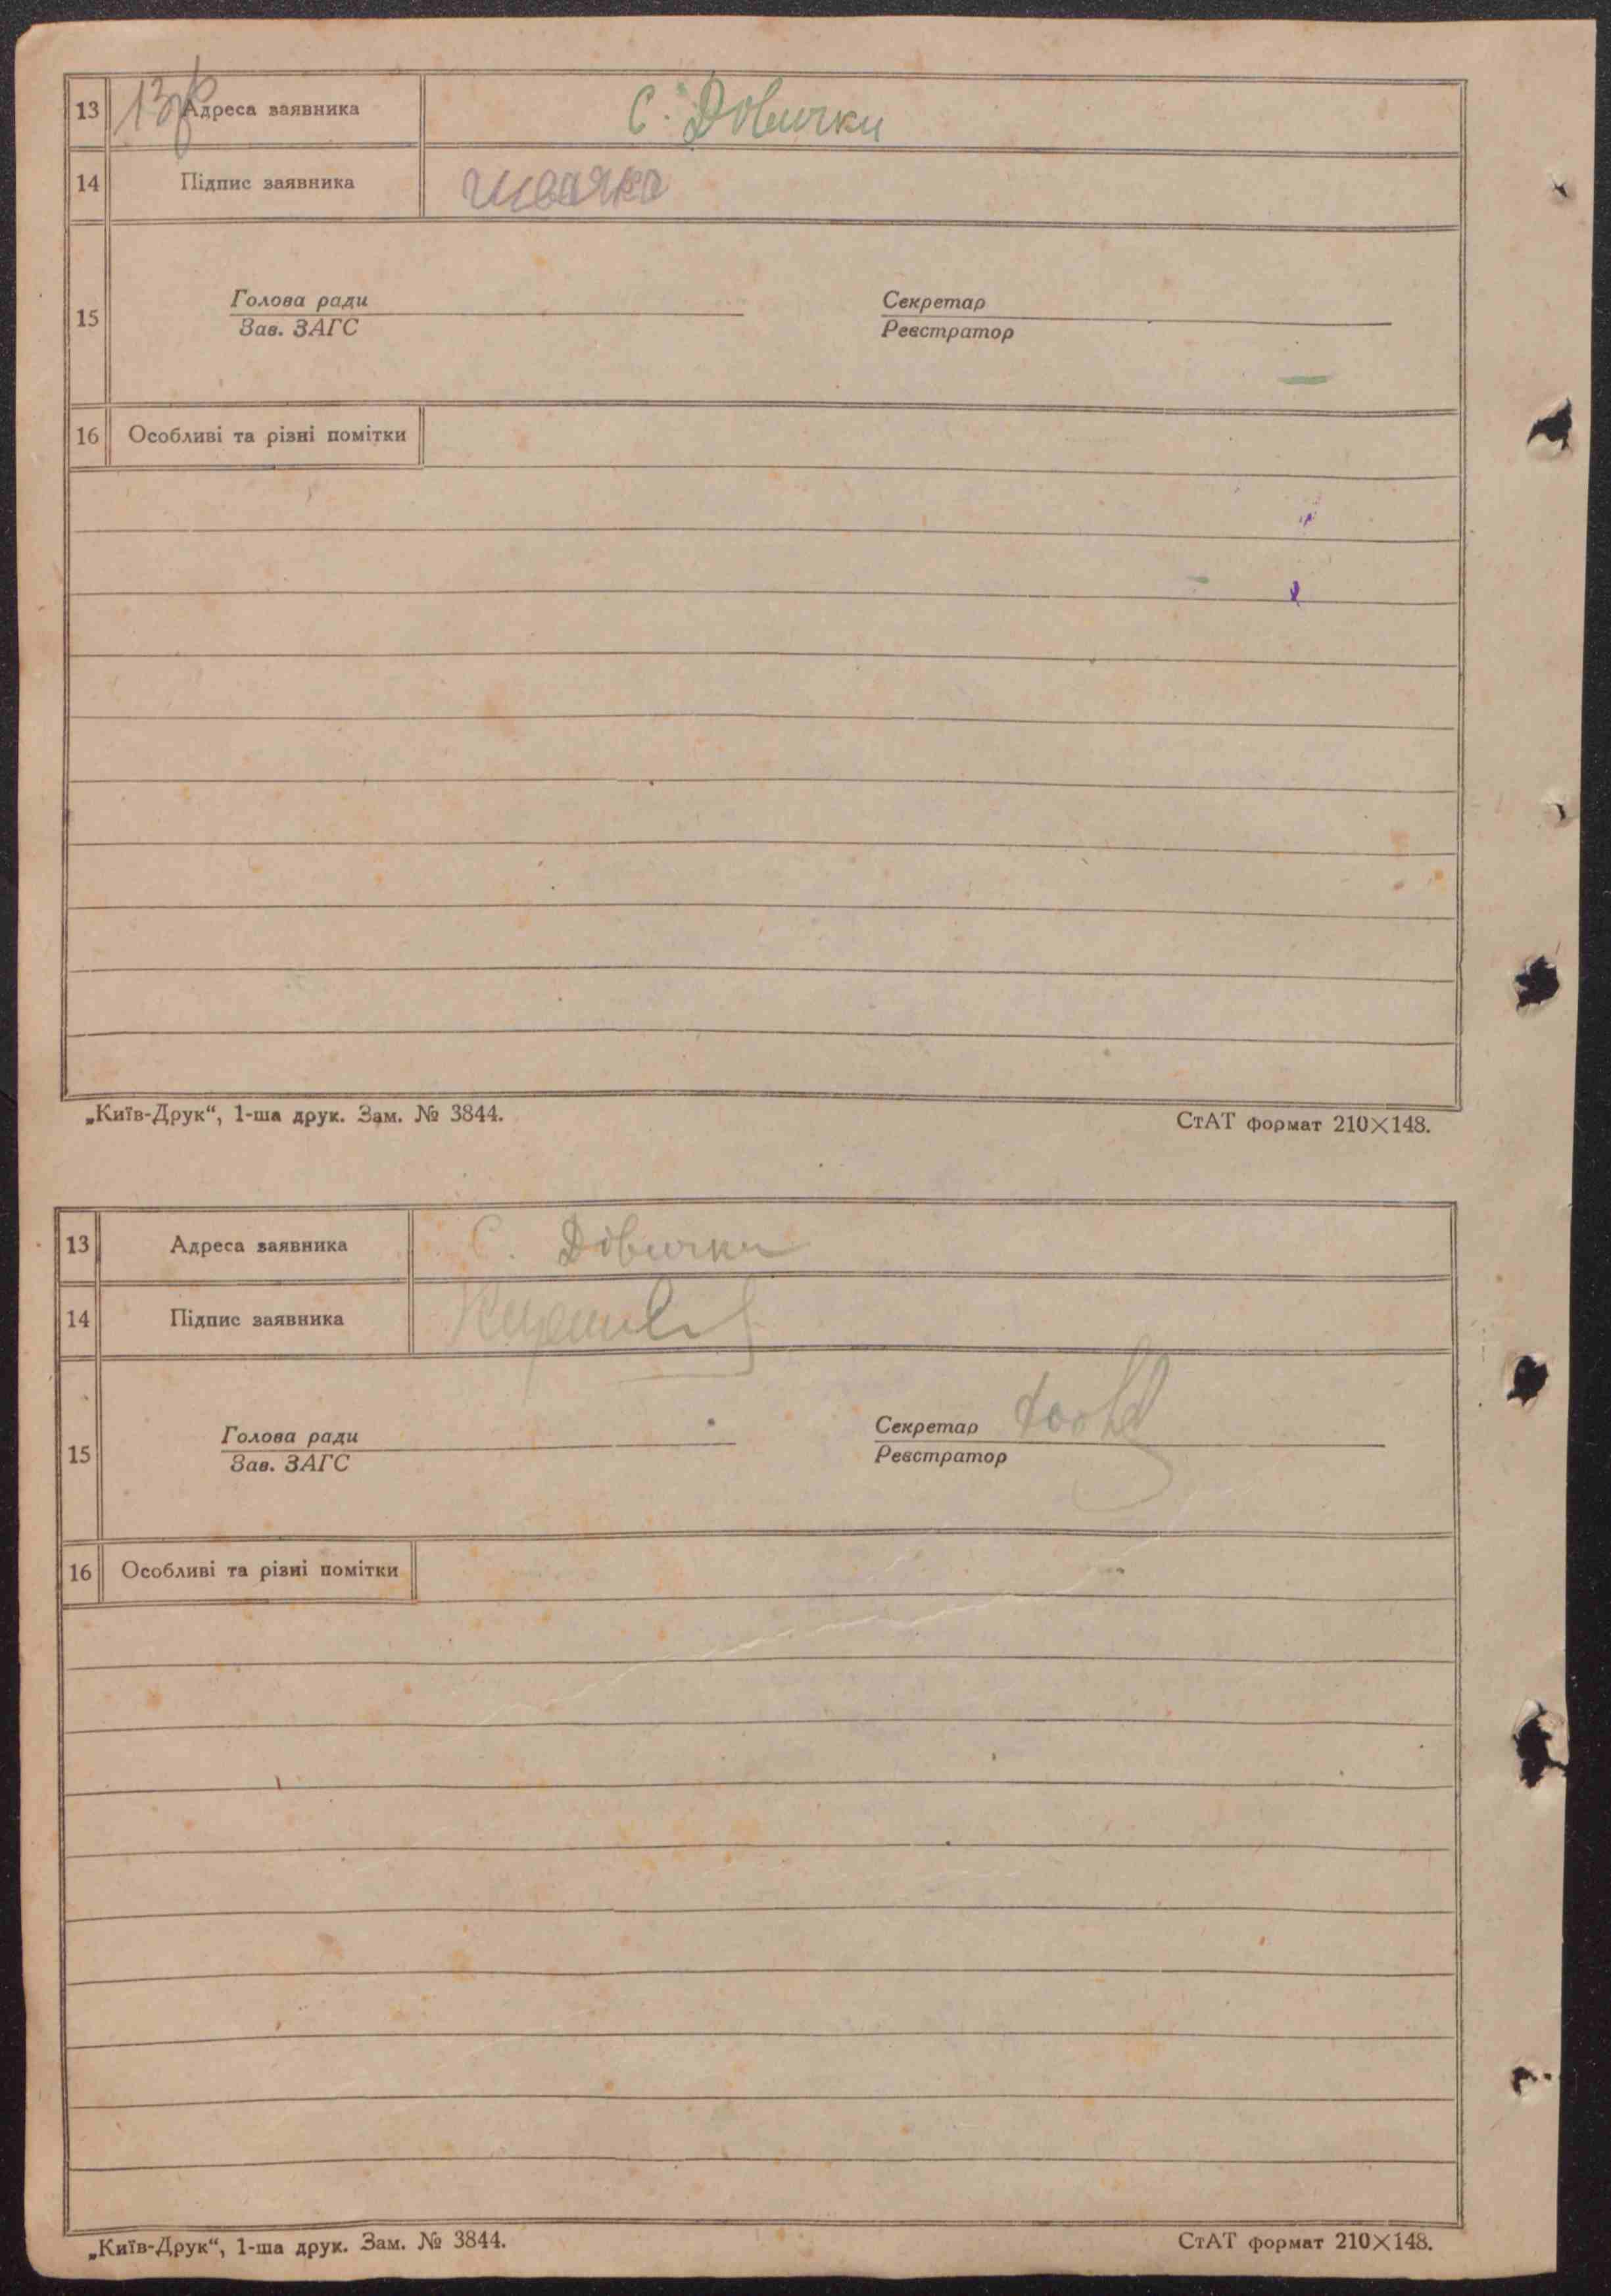 13 Адреса заявника С. Дівички
14 Підпис заявника Швачка
15 Голова ради Секретар
Зав. ЗАГС Реєстратор
16 Особливі та різні помітки
„Київ-Друк“, 1-ша друк. Зам. № 3844. СтАТ формат 210×148.
13 Адреса заявника С. Дівички
14 Підпис заявника
15 Голова ради Секретар
Зав. ЗАГС Реєстратор
16 Особливі та різні помітки
„Київ-Друк“, 1-ша друк. Зам. № 3844. СтАТ формат 210×148.